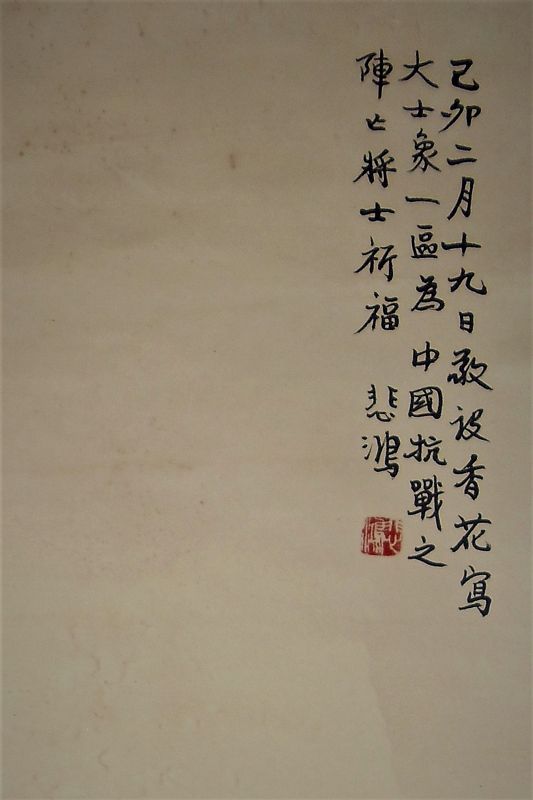 己卯二月十九日敬設香花寫
大士象一區為中國抗戰之
陣亡將士祈福 悲鴻
悲鴻